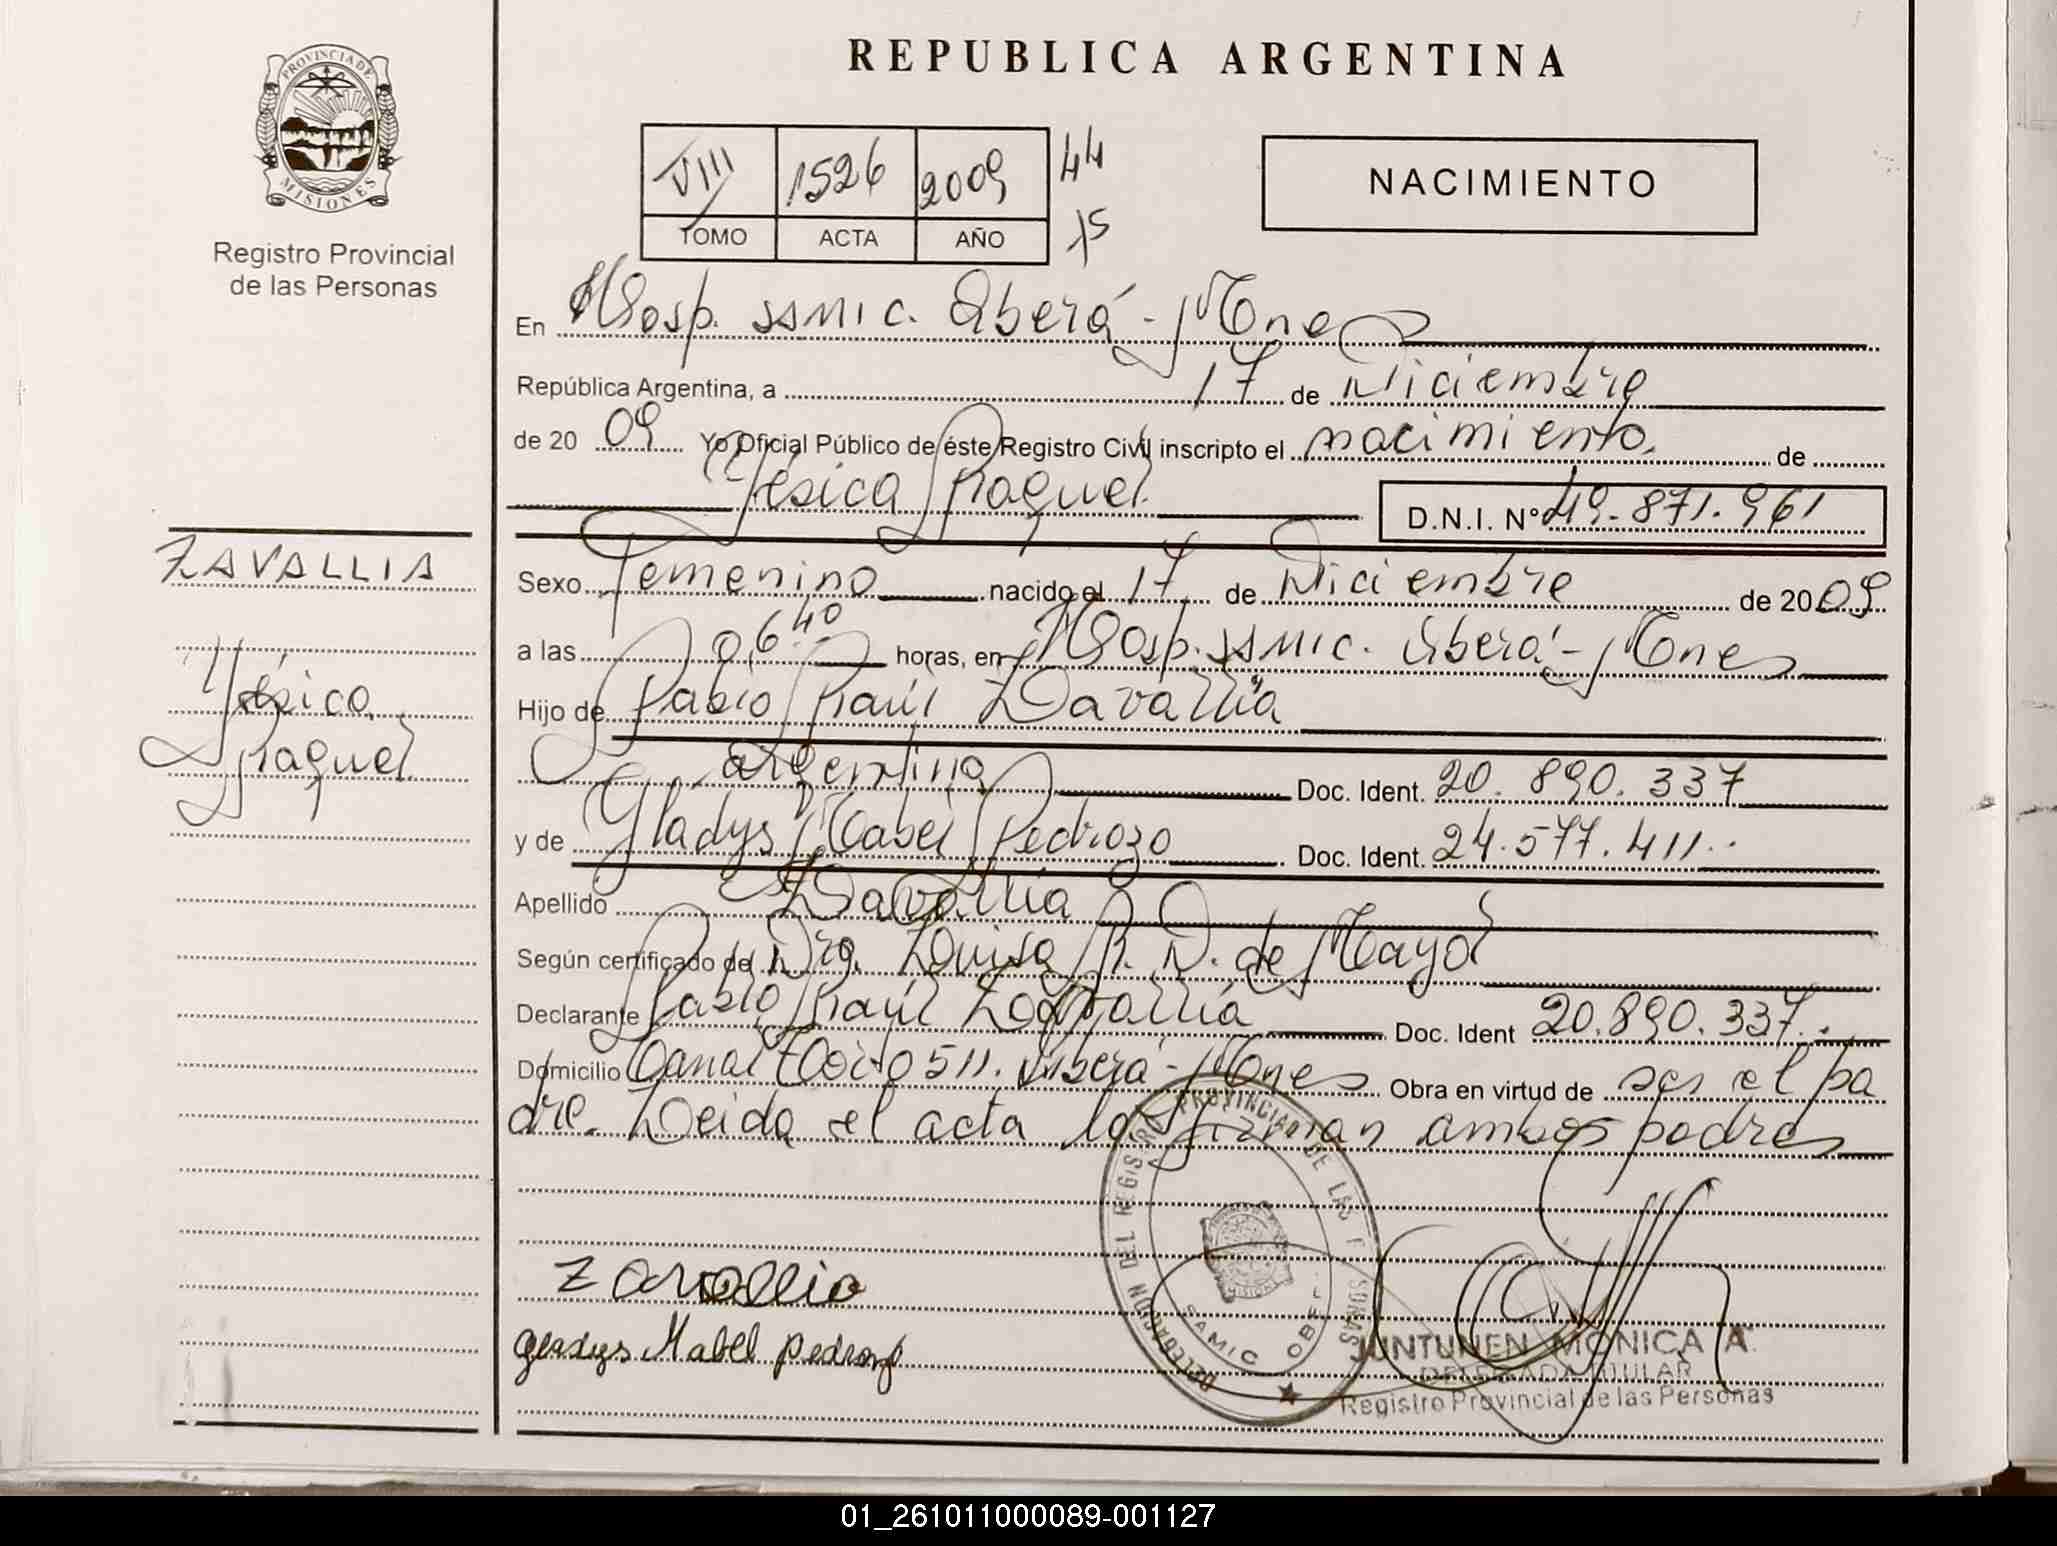 PROVINCIA DE
MISIONES
Registro Provincial
de las Personas
REPUBLICA ARGENTINA
VIII 1526 2009 44
TOMO ACTA AÑO 75
NACIMIENTO
En Hosp. SAMIC. Oberá - Mnes
República Argentina, a 17 de Diciembre
de 20 09 Yo Oficial Público de éste Registro Civil inscripto el nacimiento. de
Yésica Raquel D.N.I. Nº 49.871.961
ZAVALLIA
Yésica
Raquel
Sexo Femenino nacido el 17 de Diciembre de 20 09
a las 06 40 horas, en Hosp. SAMIC. Oberá - Mnes
Hijo de Pablo Raúl Zavallia
argentino Doc. Ident. 20.890.337
y de Gladys Mabel Pedrozo Doc. Ident. 24.577.411
Apellido Zavallia
Según certificado de Dra. Luisa R. D. de Mayol
Declarante Pablo Raúl Zavallia Doc. Ident 20.890.337
Domicilio 511. Oberá - Mnes Obra en virtud de ser el pa
dre. Leida el acta la firman ambos padres
Zavallia
Gladys Mabel Pedrozo
DELEGACION DEL REGISTRO PROVINCIAL DE LAS PERSONAS
SAMIC OBE
JUNTUNEN MONICA A.
DELEGADA TITULAR
Registro Provincial de las Personas
01_261011000089-001127